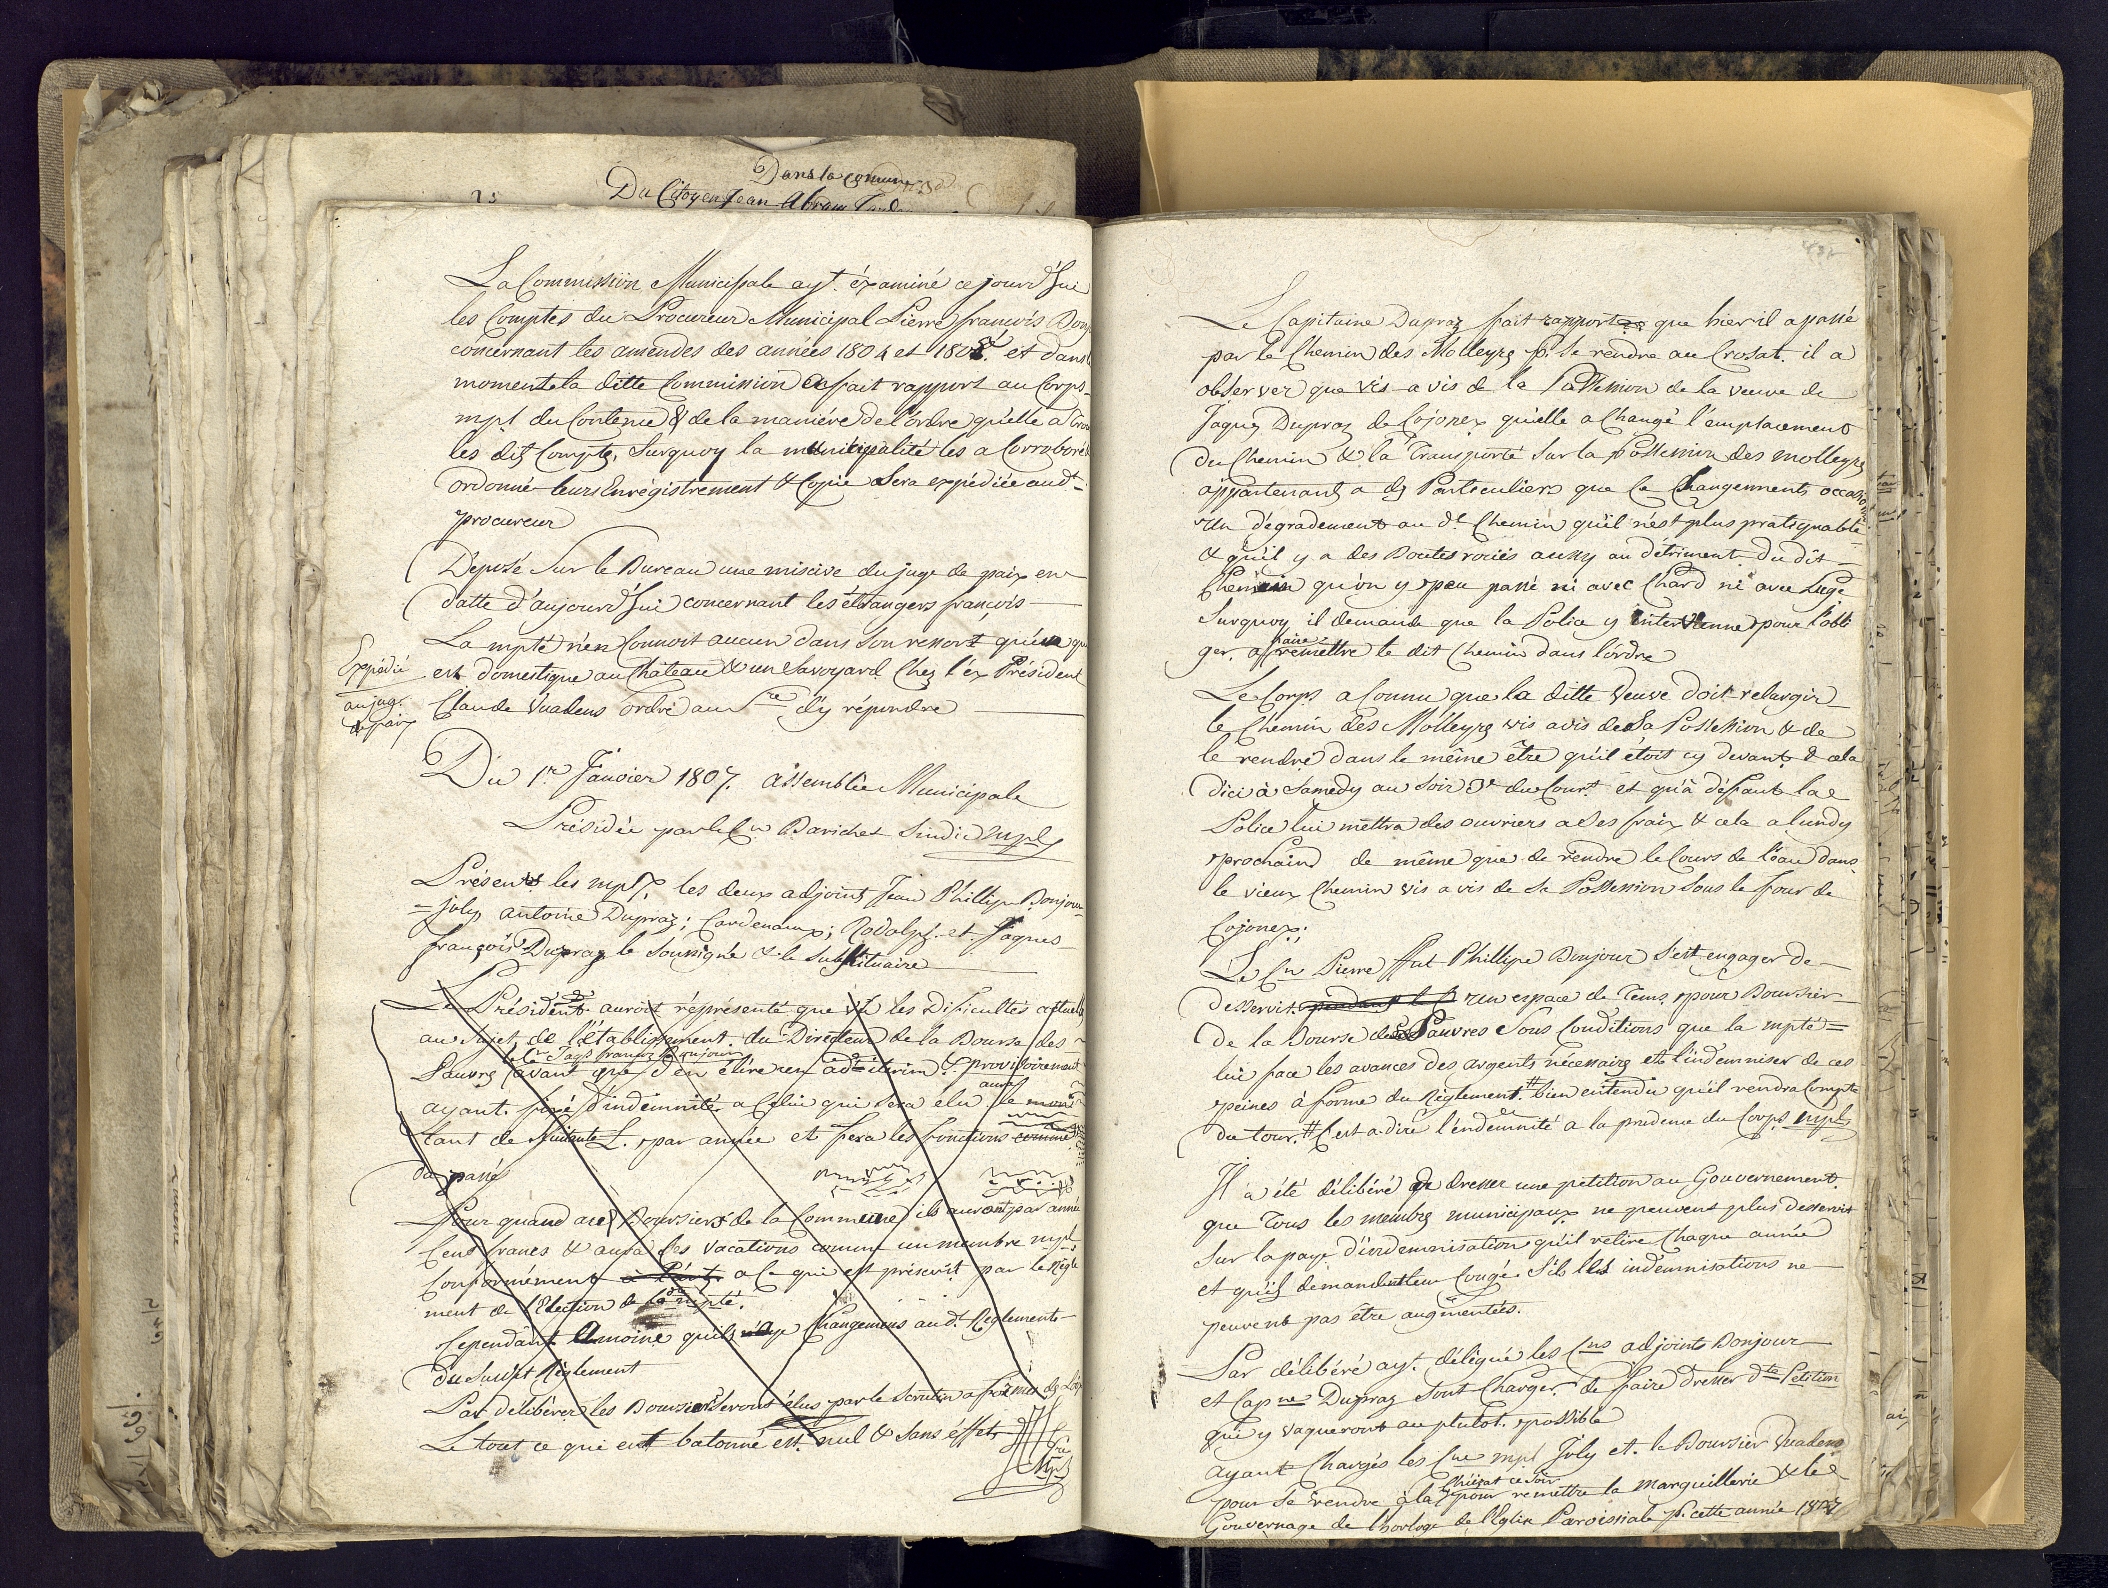 Dans la comune
Du Citoyen Jean Abram
La Commission Municipale ayt. éxaminé ce jourd'hui
les Comptes du Procureur Municipal Pierre françois Bonj
concernant les amendes des années 1804 et 1805. et dans le
moment la ditte Commission a fait rapport au Corps
mpl du Contenu & de la maniére de l'ordre qu'elle a trou
les dits Compts, Surquoy la municipalité les a Corroboré &
ordonné leurs Enrégistrement & Copie Sera expédiée aud.t
procureur
Deposé Sur le Bureau une miscive du juge de paix en
datte d'aujourd'hui concernant les étrangers françois
La mpté n'en Connoit aucun dans Son ressort qu'un qui
est domestique au Château & un Savoyard Chez l'éx Président
Claude Vuadens ordre au S.re d'y répondre
Expédié
au jug.
de paix
Du 1.er Janvier 1807. assemblée Municipale
Présidée par le C.n Barichet Sindic mpl
Présents les mpls, les deux adjoints Jean Phillipe Bonjour
joly, antoine Dupraz; Cardenaux; Rodolph. et Jaques
françois Dupraz le Soussigné & le Substituaire
Le Président auroit réprésenté que vu les Dificultés actuelles
au Sujet de l'établissement du Directeur de la Bourse des
le C.n Jaqs françois Bonjour
Pauvrs avant que d'en élire un ad interim & provisoirement
ayant fixé d'indemnité a Celui qui Sera élu
aura
le mon
tant de L. par année et fera les fonctions comme
du passé
Pour quand aux Boursiers de la Commune ils auront par année
Cent francs & aura Ses vacations comme un membre mpl
Conformément a Ce qui est préscrit par le Régle
ment de l'Election de la mpté.
Cependant a moins qu'ils Changemens aud.t Réglements
du Susdit Réglement
Par délibérer les Boursiers Seront élus par le Scrutin a formes des Lois
Le tout ce que est batonné est nul & Sans éffet
Le Capitaine Dupraz fait rapport que hier il a passé
par le Chemin des Molleyrs p. Se rendre au Crosat. il a
observer que vis a vis de la Possession de la veuve de
Jaques Dupraz de Cojonex qu'elle a Changé l'emplacement
du Chemin & la Transporté Sur la possession des molleyrs
appartenants a ds Particuliers que Ce Changements occasionne
un dégradement au dt Chemin qu'il n'est plus pratiquable
& qu'il y a des Boutes rociés aussy au détriment du dit
Chemin qu'on y peu passé ni avec Chard ni avec Luge
Surquoy il demande que la Police y intervienne pour l'obli
ger a
faire
remettre le dit Chemin dans l'ordre
Le Corps a Connu que la ditte Veuve doit relargir
le Chemin des Molleyrs vis a vis de Sa Possession & de
le rendre dans le même être qu'il étoit cy devant & cela
d'ici à Samedy au Soir 3e du Cour.t et qu'à défaut la
Police lui mettra des ouvriers a Ses fraix & cela a lundy
prochain de même que de rendre le Cours de l'eau dans
le vieux Chemin vis a vis de Sa Possession Sous le four de
Cojonex;
Le C.n Pierre Phillipe Bonjour S'est engager de
desservir un espace de Tems pour Boursier
de la Bourse des Pauvres Sous Conditions que la mpté
lui face les avances des argents nécessairs et l'indemniser de ces
peines à forme du Réglement # bien entendu qu'il rendra Compte
du tour. # C'est a dire l'endemnité a la prudence du Corps mpl
Il a été délibéré de dresser une petition au Gouvernement
que Tous les membrs municipaux ne peuvent plus desservir
Sur la paye d'indemnisation qu'il retire Chaque année
et qu'ils demandent leur Congé. S'il les indemnisations ne
peuvent pas être augmentées.
Par délibéré ay.t délégué les C.ns adjoints Bonjour
et Cap.ne Dupraz Sont Charger de faire dresser d.te Pétition
qui y vaqueront au plutot. possible
Ayant Chargés les C.ns mpl Joly et le Boursier Vuadens
pour Se rendre à la
pour remettre la Marguillerie & le
Gouvernage de l'horloge de l'Eglise Paroissiale p. cette année 1807